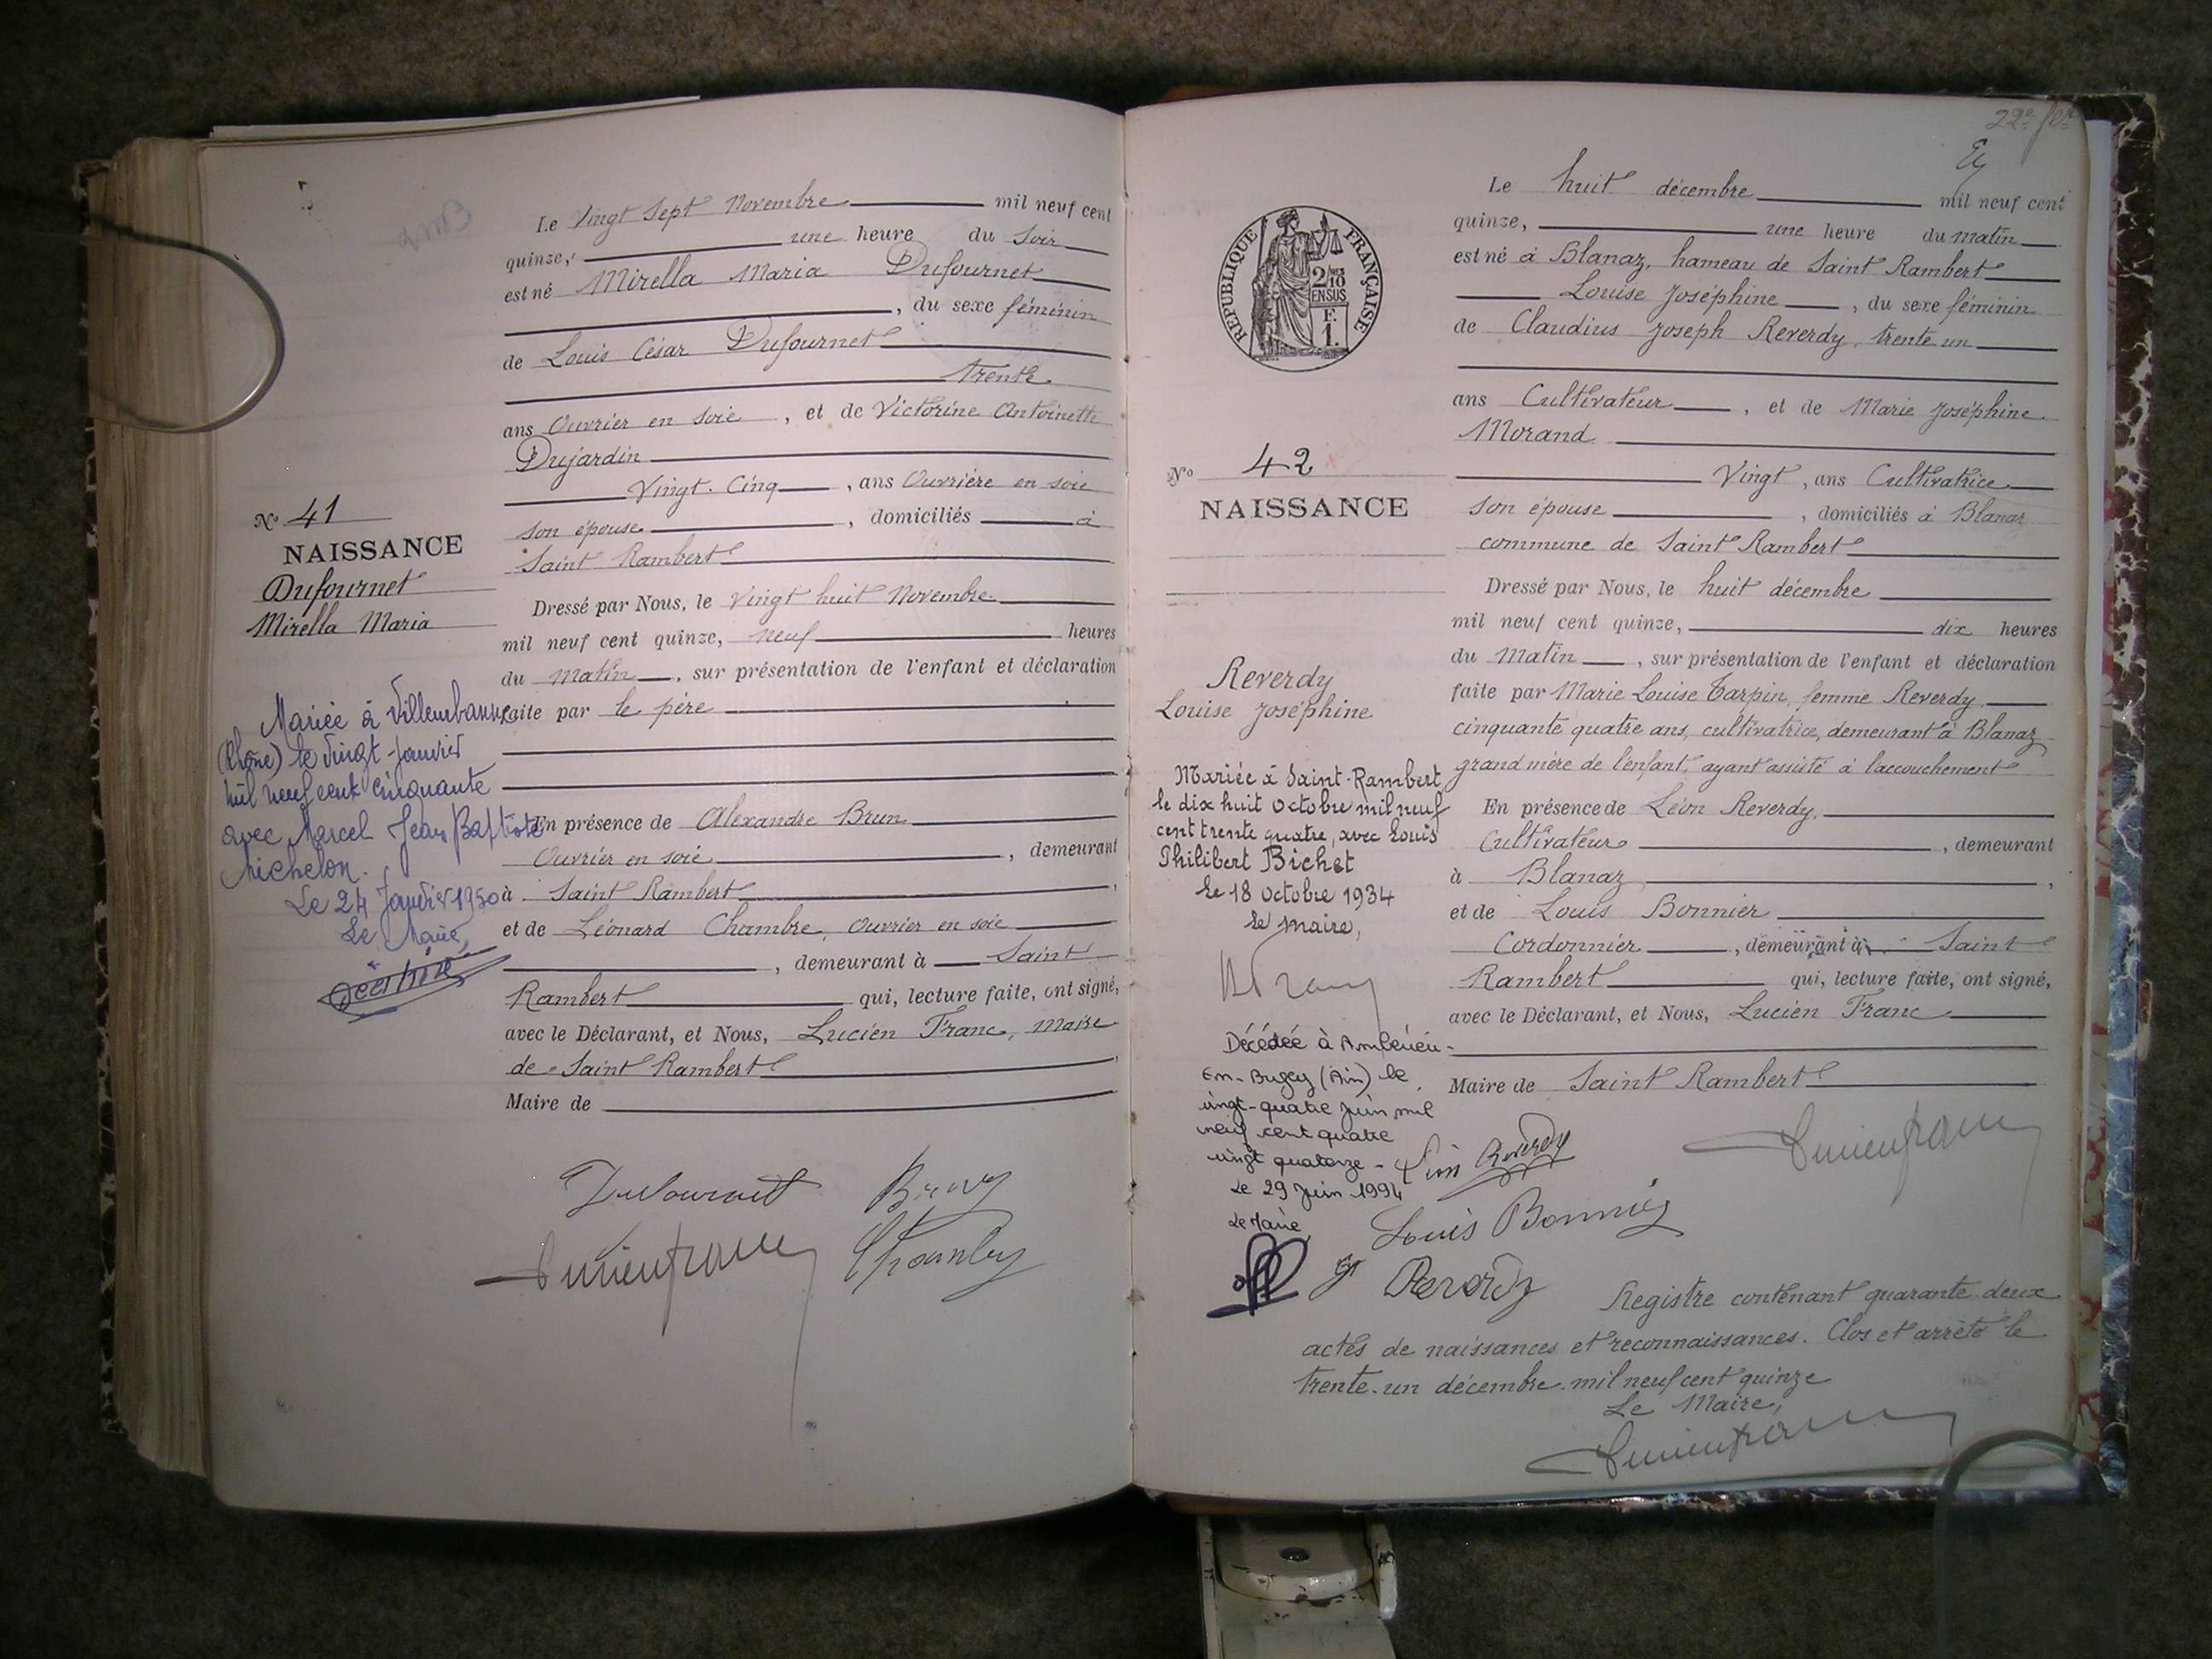 Le Vingt Sept Novembre mil neuf cent
quinze, une heure du Soir
est né Mirella Maria Dufournet
, du sexe féminin
de Louis César Dufournet
trente
ans Ouvrier en soie, et de Victorine Antoinette
Dujardin
Vingt. Cinq, ans Ouvrière en soie
son épouse, domiciliés à
Saint Rambert
Dressé par Nous, le Vingt huit Novembre
mil neuf cent quinze, neuf heures
du Matin, sur présentation de l'enfant et déclaration
faite par le père
En présence de Alexandre Brun
Ouvrier en soie, demeurant
à Saint Rambert,
et de Léonard Chambre, Ouvrier en soie
, demeurant à Saint
Rambert qui, lecture faite, ont signé,
avec le Déclarant, et Nous, Lucien Franc, Maire
de Saint Rambert,
Maire de
Nº 41
NAISSANCE
Dufournet
Mirella Maria
Mariée à Villeurbanne
(Rhône) le vingt Janvier
mil neuf cent cinquante
avec Marcel Jean Baptiste
Michelon.
Le 24 Janvier 1950
Le Maire,
Dufournet Brun
Lucien Franc
22e
Le huit décembre mil neuf cent
quinze, une heure du matin
est né à Blanaz, hameau de Saint Rambert
Louise Joséphine, du sexe féminin
de Claudius Joseph Reverdy, trente un
ans Cultivateur, et de Marie Joséphine
Morand
Vingt, ans Cultivatrice
son épouse, domiciliés à Blanaz
commune de Saint Rambert
Dressé par Nous, le huit décembre
mil neuf cent quinze, dix heures
du Matin, sur présentation de l'enfant et déclaration
faite par Marie Louise Tarpin, femme Reverdy
cinquante quatre ans, cultivatrice, demeurant à Blanaz
grand mère de l'enfant, ayant assisté à l'accouchement
En présence de Léon Reverdy,
Cultivateur, demeurant
à Blanaz,
et de Louis Bonnier
Cordonnier, demeurant à Saint
Rambert qui, lecture faite, ont signé,
avec le Déclarant, et Nous, Lucien Franc
Maire de Saint Rambert
RÉPUBLIQUE FRANÇAISE
2/10
EN SUS
F.
1.
Nº 42
NAISSANCE
Reverdy
Louise Joséphine
Mariée à Saint-Rambert
le dix huit Octobre mil neuf
cent trente quatre, avec Louis
Philibert Bichet
Le 18 Octobre 1934
Le Maire,
Décédée à Ambérieu-
En-Bugey (Ain) le
vingt-quatre juin mil
neuf cent quatre
vingt quatorze -
Le 29 Juin 1994
Le Maire
Léon Reverdy
Lucien Franc
Louis Bonnier
Reverdy
Registre contenant quarante-deux
actes de naissances et reconnaissances. Clos et arrêté le
trente-un décembre mil neuf cent quinze
Le Maire,
Lucien Franc